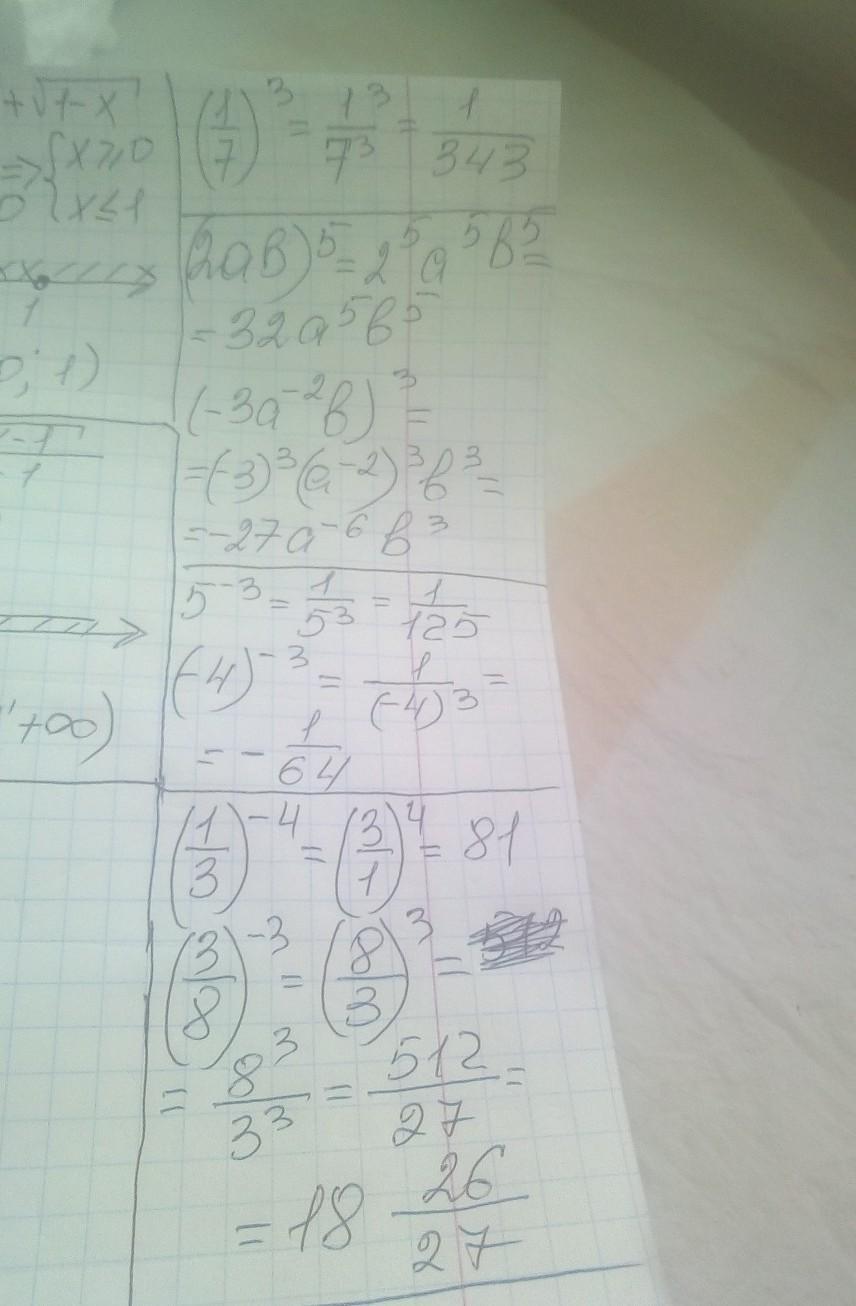 +√(1-x)
=> {x⩾0
0 {x≤1
1
0; 1)
-1
-1
'+∞)
(1/7)³ = 1³/7³ = 1/343
(2ab)⁵ = 2⁵a⁵b⁵ =
= 32a⁵b⁵
(-3a⁻²b)³ =
= (-3)³(a⁻²)³b³ =
= -27a⁻⁶b³
5⁻³ = 1/5³ = 1/125
(-4)⁻³ = 1/(-4)³ =
= - 1/64
(1/3)⁻⁴ = (3/1)⁴ = 81
(3/8)⁻³ = (8/3)³ =
= 8³/3³ = 512/27 =
= 18 26/27